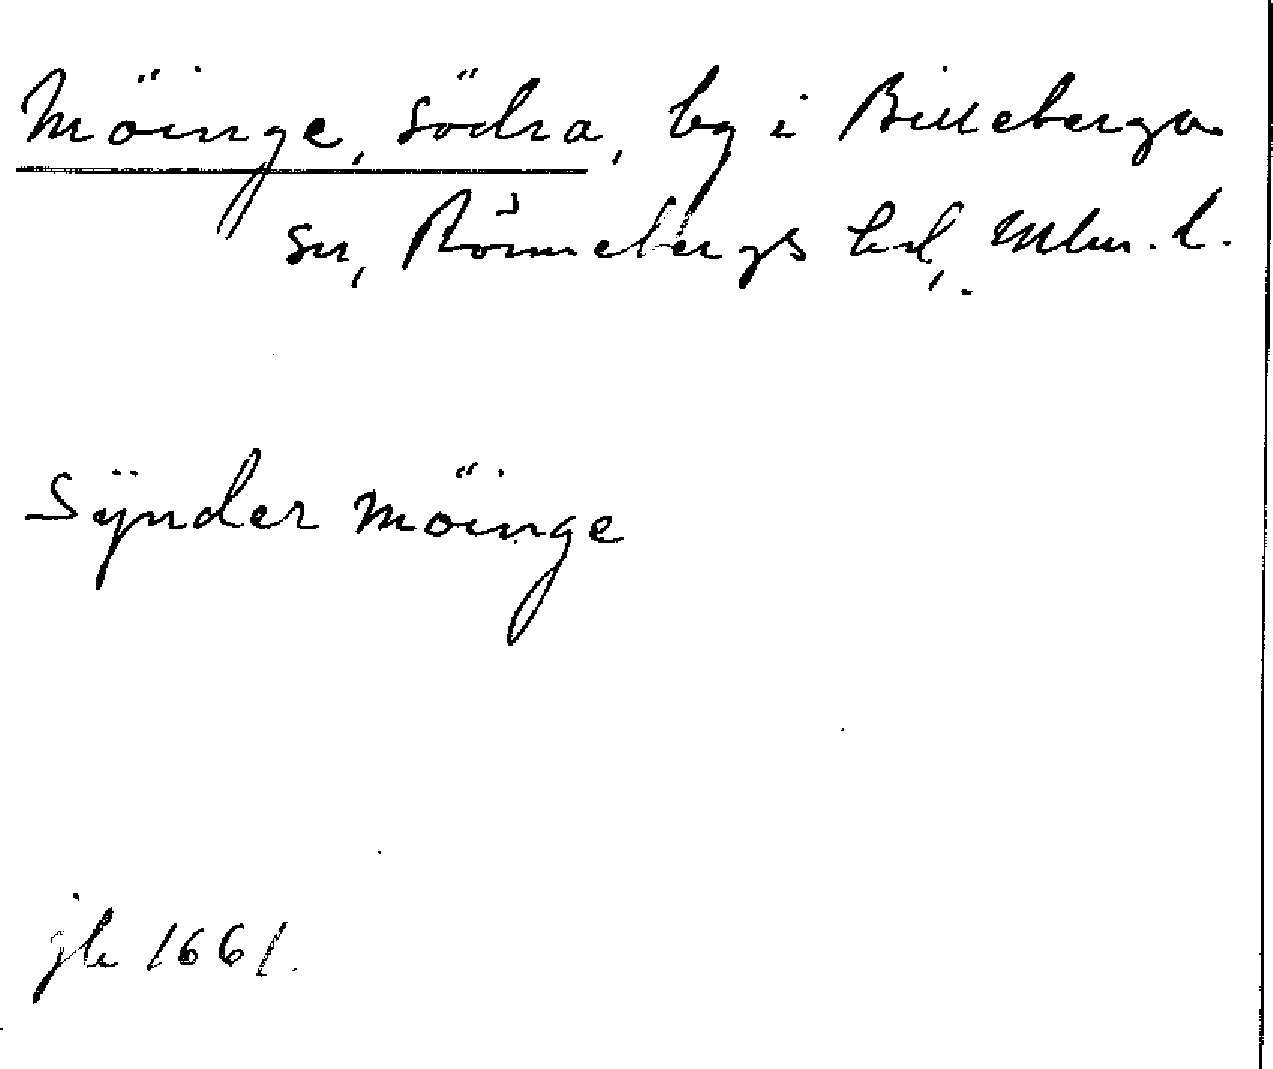 Möinge, södra, by i Billeberga
sn, Rönnebergs hd, Mlm. l.
Sÿnder Möinge
jb 1661.